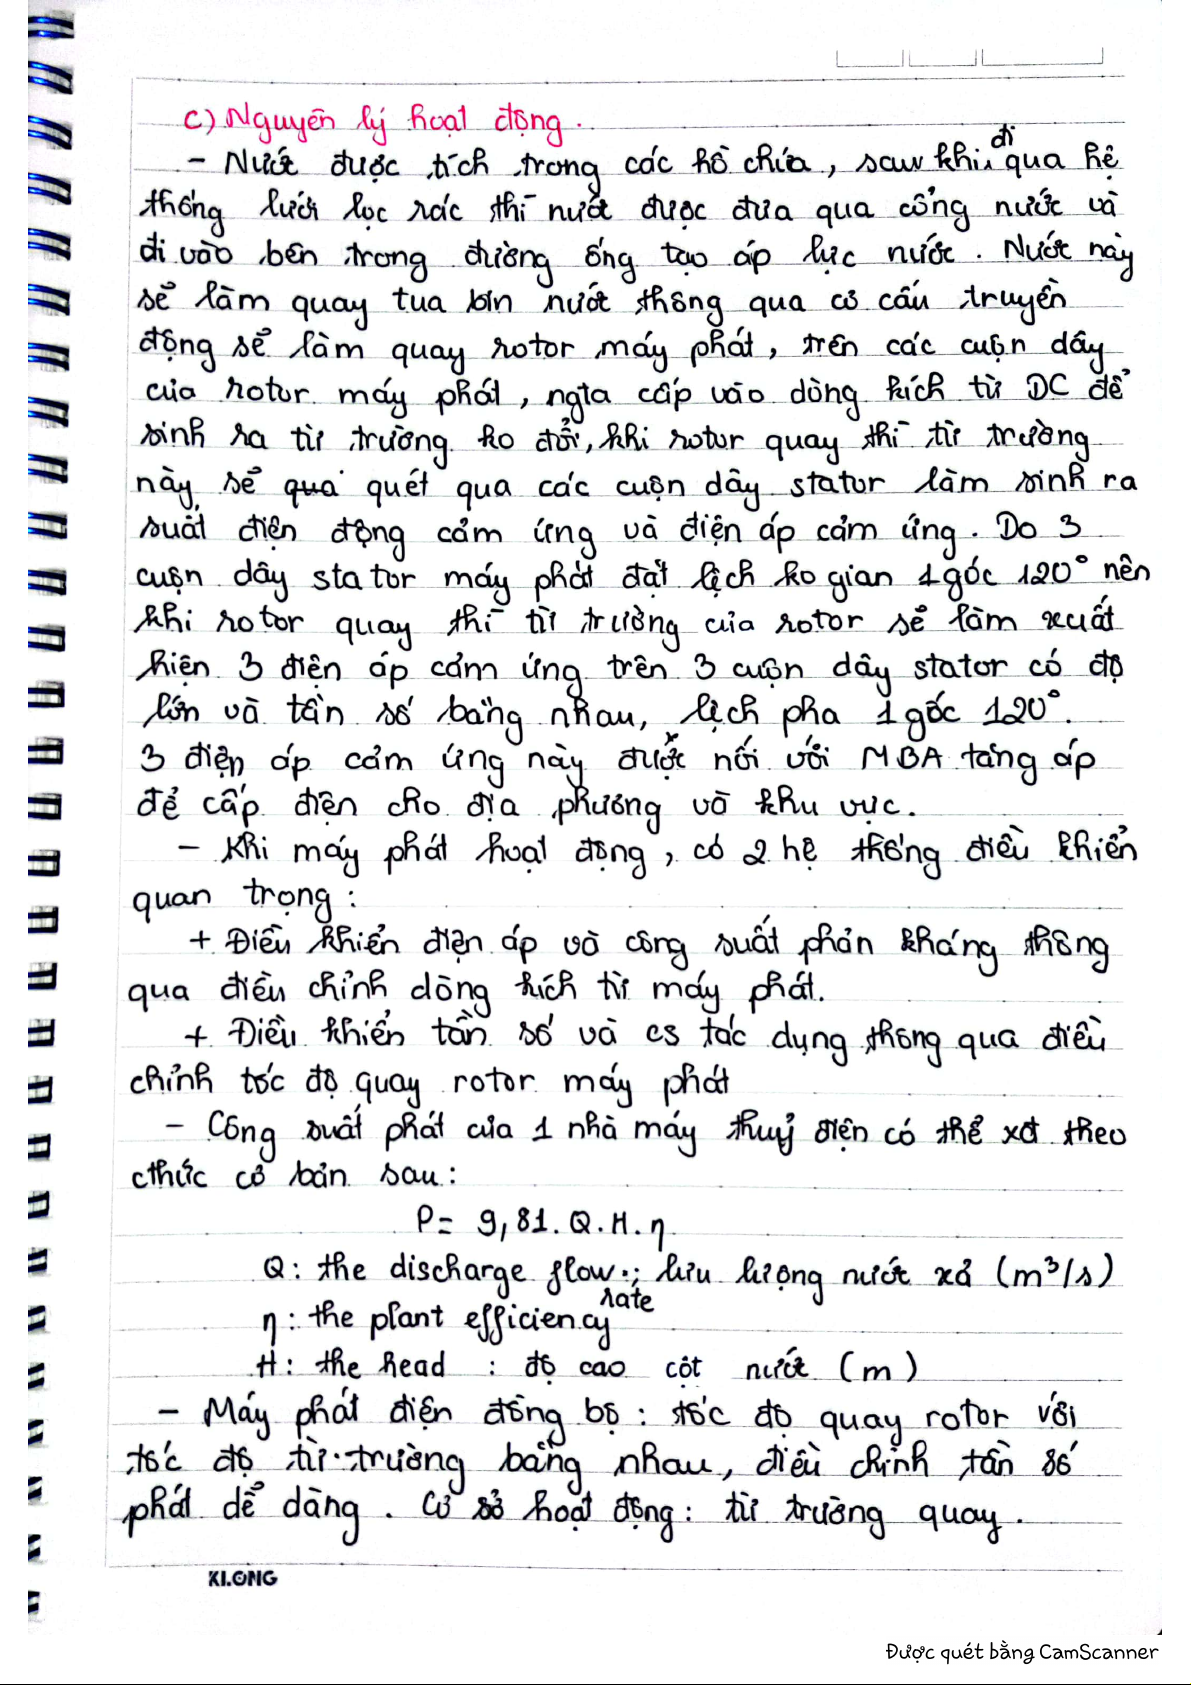 c) Nguyên lý hoạt động.
- Nước được tích trong các hồ chứa, sau khi đi qua hệ
thống lưới lọc rác thì nước được đưa qua cổng nước và
đi vào bên trong đường ống tạo áp lực nước. Nước này
sẽ làm quay tua bin nước thông qua cơ cấu truyền
động sẽ làm quay rotor máy phát, trên các cuộn dây
của rotor máy phát, ngta cấp vào dòng kích từ DC để
sinh ra từ trường ko đổi, khi rotor quay thì từ trường
này sẽ qua quét qua các cuộn dây stator làm sinh ra
suất điện động cảm ứng và điện áp cảm ứng. Do 3
cuộn dây stator máy phát đặt lệch ko gian 1 góc 120° nên
khi rotor quay thì từ trường của rotor sẽ làm xuất
hiện 3 điện áp cảm ứng trên 3 cuộn dây stator có độ
lớn và tần số bằng nhau, lệch pha 1 góc 120°.
3 điện áp cảm ứng này được nối với MBA tăng áp
để cấp điện cho địa phương và khu vực.
- Khi máy phát hoạt động, có 2 hệ thống điều khiển
quan trọng:
+ Điều khiển điện áp và công suất phản kháng thông
qua điều chỉnh dòng kích từ máy phát.
+ Điều khiển tần số và cs tác dụng thông qua điều
chỉnh tốc độ quay rotor máy phát
- Công suất phát của 1 nhà máy thuỷ điện có thể xđ theo
cthức cơ bản sau:
P= 9,81.Q.H.η
Q: the discharge flow: lưu lượng nước xả (m³/s)
η: the plant efficiency rate
H: the head : độ cao cột nước (m)
- Máy phát điện đồng bộ: tốc độ quay rotor với
tốc độ từ trường bằng nhau, điều chỉnh tần số
phát dễ dàng. Cơ sở hoạt động: từ trường quay.
KLONG
Được quét bằng CamScanner